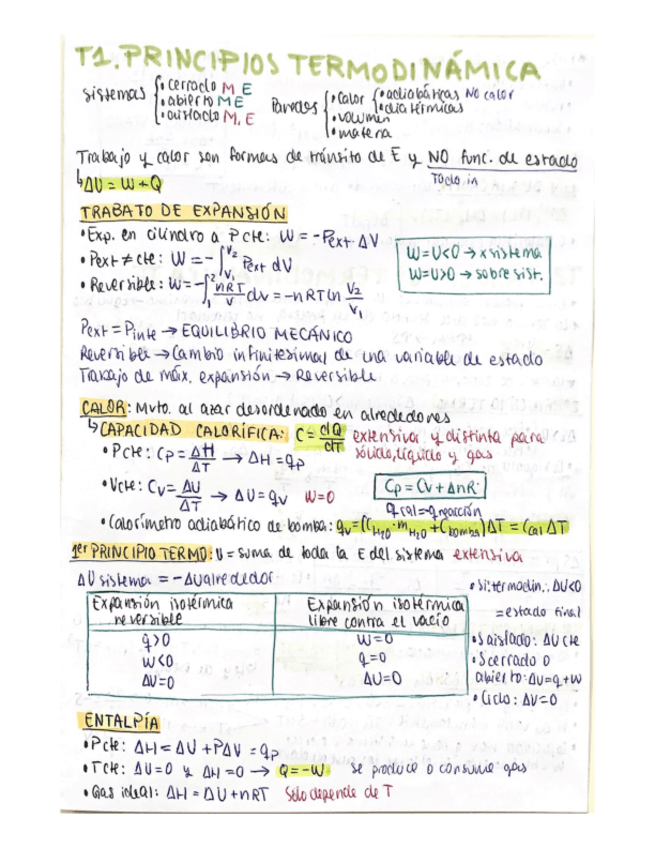 T1. PRINCIPIOS TERMODINÁMICA
sistemas { • cerrado M E
• abierto M E
• aislado M, E
Paredes { • calor { • adiabáticas NO calor
• diatérmicas
• volumen
• materia
Trabajo y calor son formas de tránsito de E y NO func. de estado
↳ ΔU = W + Q
TRABAJO DE EXPANSIÓN
• Exp. en cilindro a P cte: W = -Pext · ΔV
• Pext ≠ cte: W = -∫ V2 V1 Pext dV
• Reversible: W = -∫ 2 1 nRT/V dv = -nRT ln V2/V1
W=U<0 → x sistema
W=U>0 → sobre sist.
Pext = Pinte → EQUILIBRIO MECÁNICO
Reversible → Cambio infinitesimal de una variable de estado
Trabajo de máx. expansión → Reversible
CALOR: Mvto. al azar desordenado en alrededores
↳ CAPACIDAD CALORÍFICA: C = dQ/dT extensiva y distinta para
sólido, líquido y gas
• P cte: Cp = ΔH/ΔT → ΔH = qp
• V cte: Cv = ΔU/ΔT → ΔU = qv W=0
Cp = Cv + ΔnR
q cal = q reacción
• Calorímetro adiabático de bomba: qv = (C H2O · m H2O + C bomba) ΔT = Ccal ΔT
1er PRINCIPIO TERMO: U = suma de toda la E del sistema extensiva
ΔU sistema = -ΔU alrededor
Expansión isotérmica
reversible
q>0
W<0
ΔU=0
Expansión isotérmica
libre contra el vacío
W=0
q=0
ΔU=0
ΔU<0
= estado final
• S aislado: ΔU cte
• S cerrado o
abierto: ΔU = q+W
• Ciclo: ΔU=0
ENTALPÍA
• P cte: ΔH = ΔU + PΔV = qp
• T cte: ΔU=0 y ΔH=0 → Q = -W se produce o consume gas
• Gas ideal: ΔH = ΔU + nRT Sólo depende de T